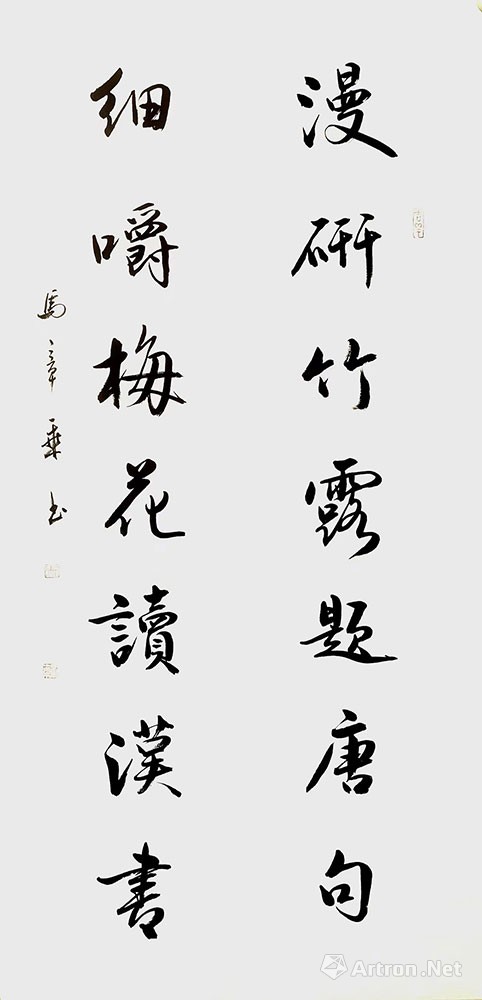 漫研竹露題唐句
細嚼梅花讀漢書
馬章乘书
Artron.Net